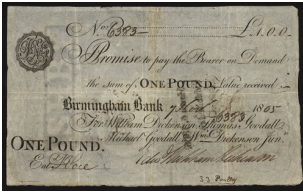 No. 6383 £1.0.0
Promise to pay the Bearer on Demand
the sum of ONE POUND, Value received
Birmingham Bank 1805
6383
For William Dickenson, Thomas Goodall
Michael Goodall & Wm. Dickenson Jun.
ONE POUND.
Entd.